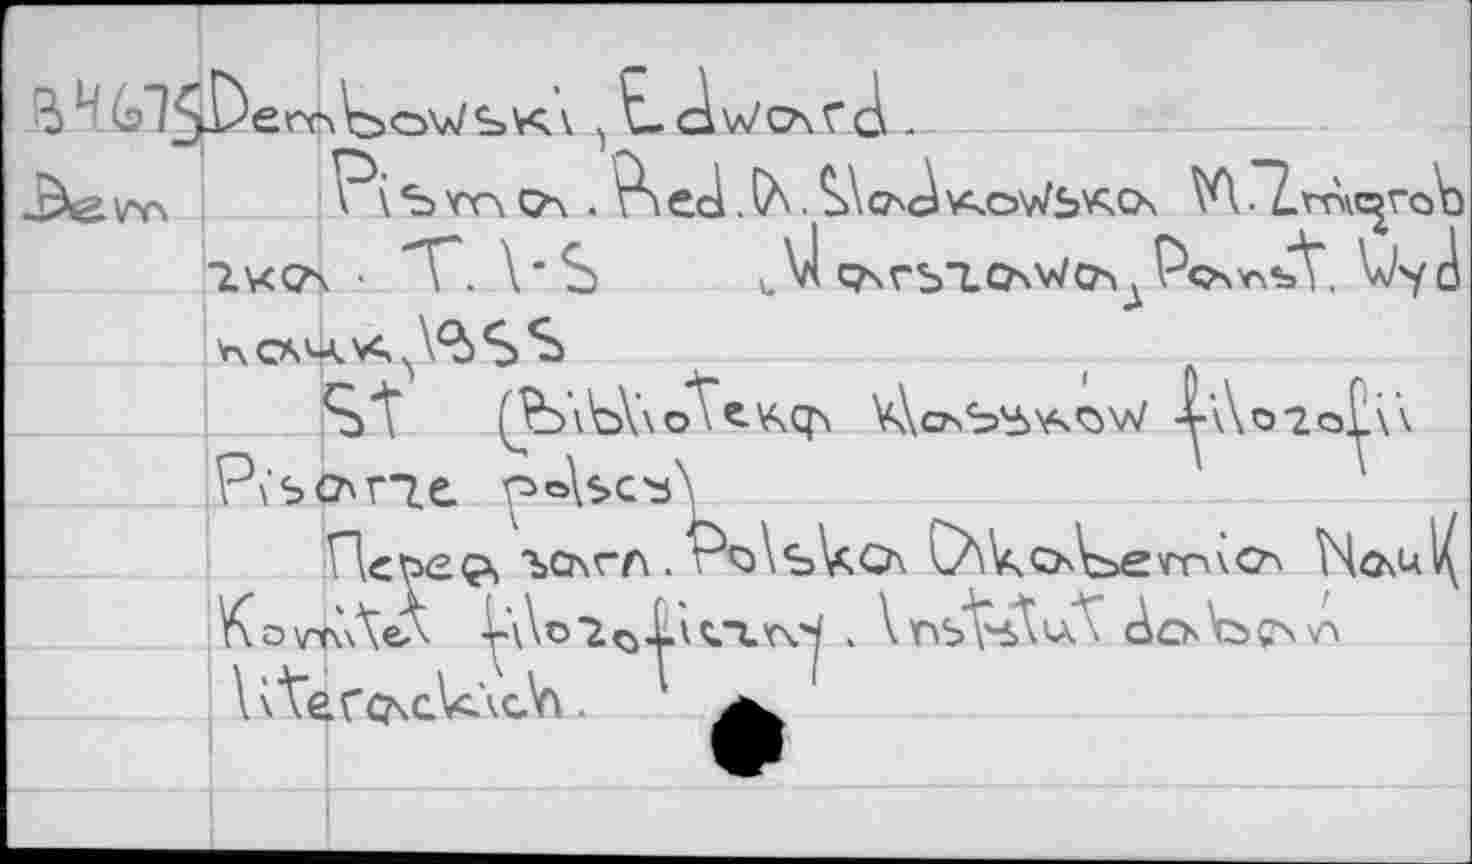 B4675 Dembowski, Edward.
Dem Pisma. Red. A. Sladkowska M. Żmigrodz
zka. T. 1-5 Warszawa, Państ. Wyd
nauk, 1955
St (Biblioteka Klasyków filozofii
Pisarze polscy)
Перед загл. Polska Akademia Nauk
Komitet filozoficzny. Instytut badań
literackich.